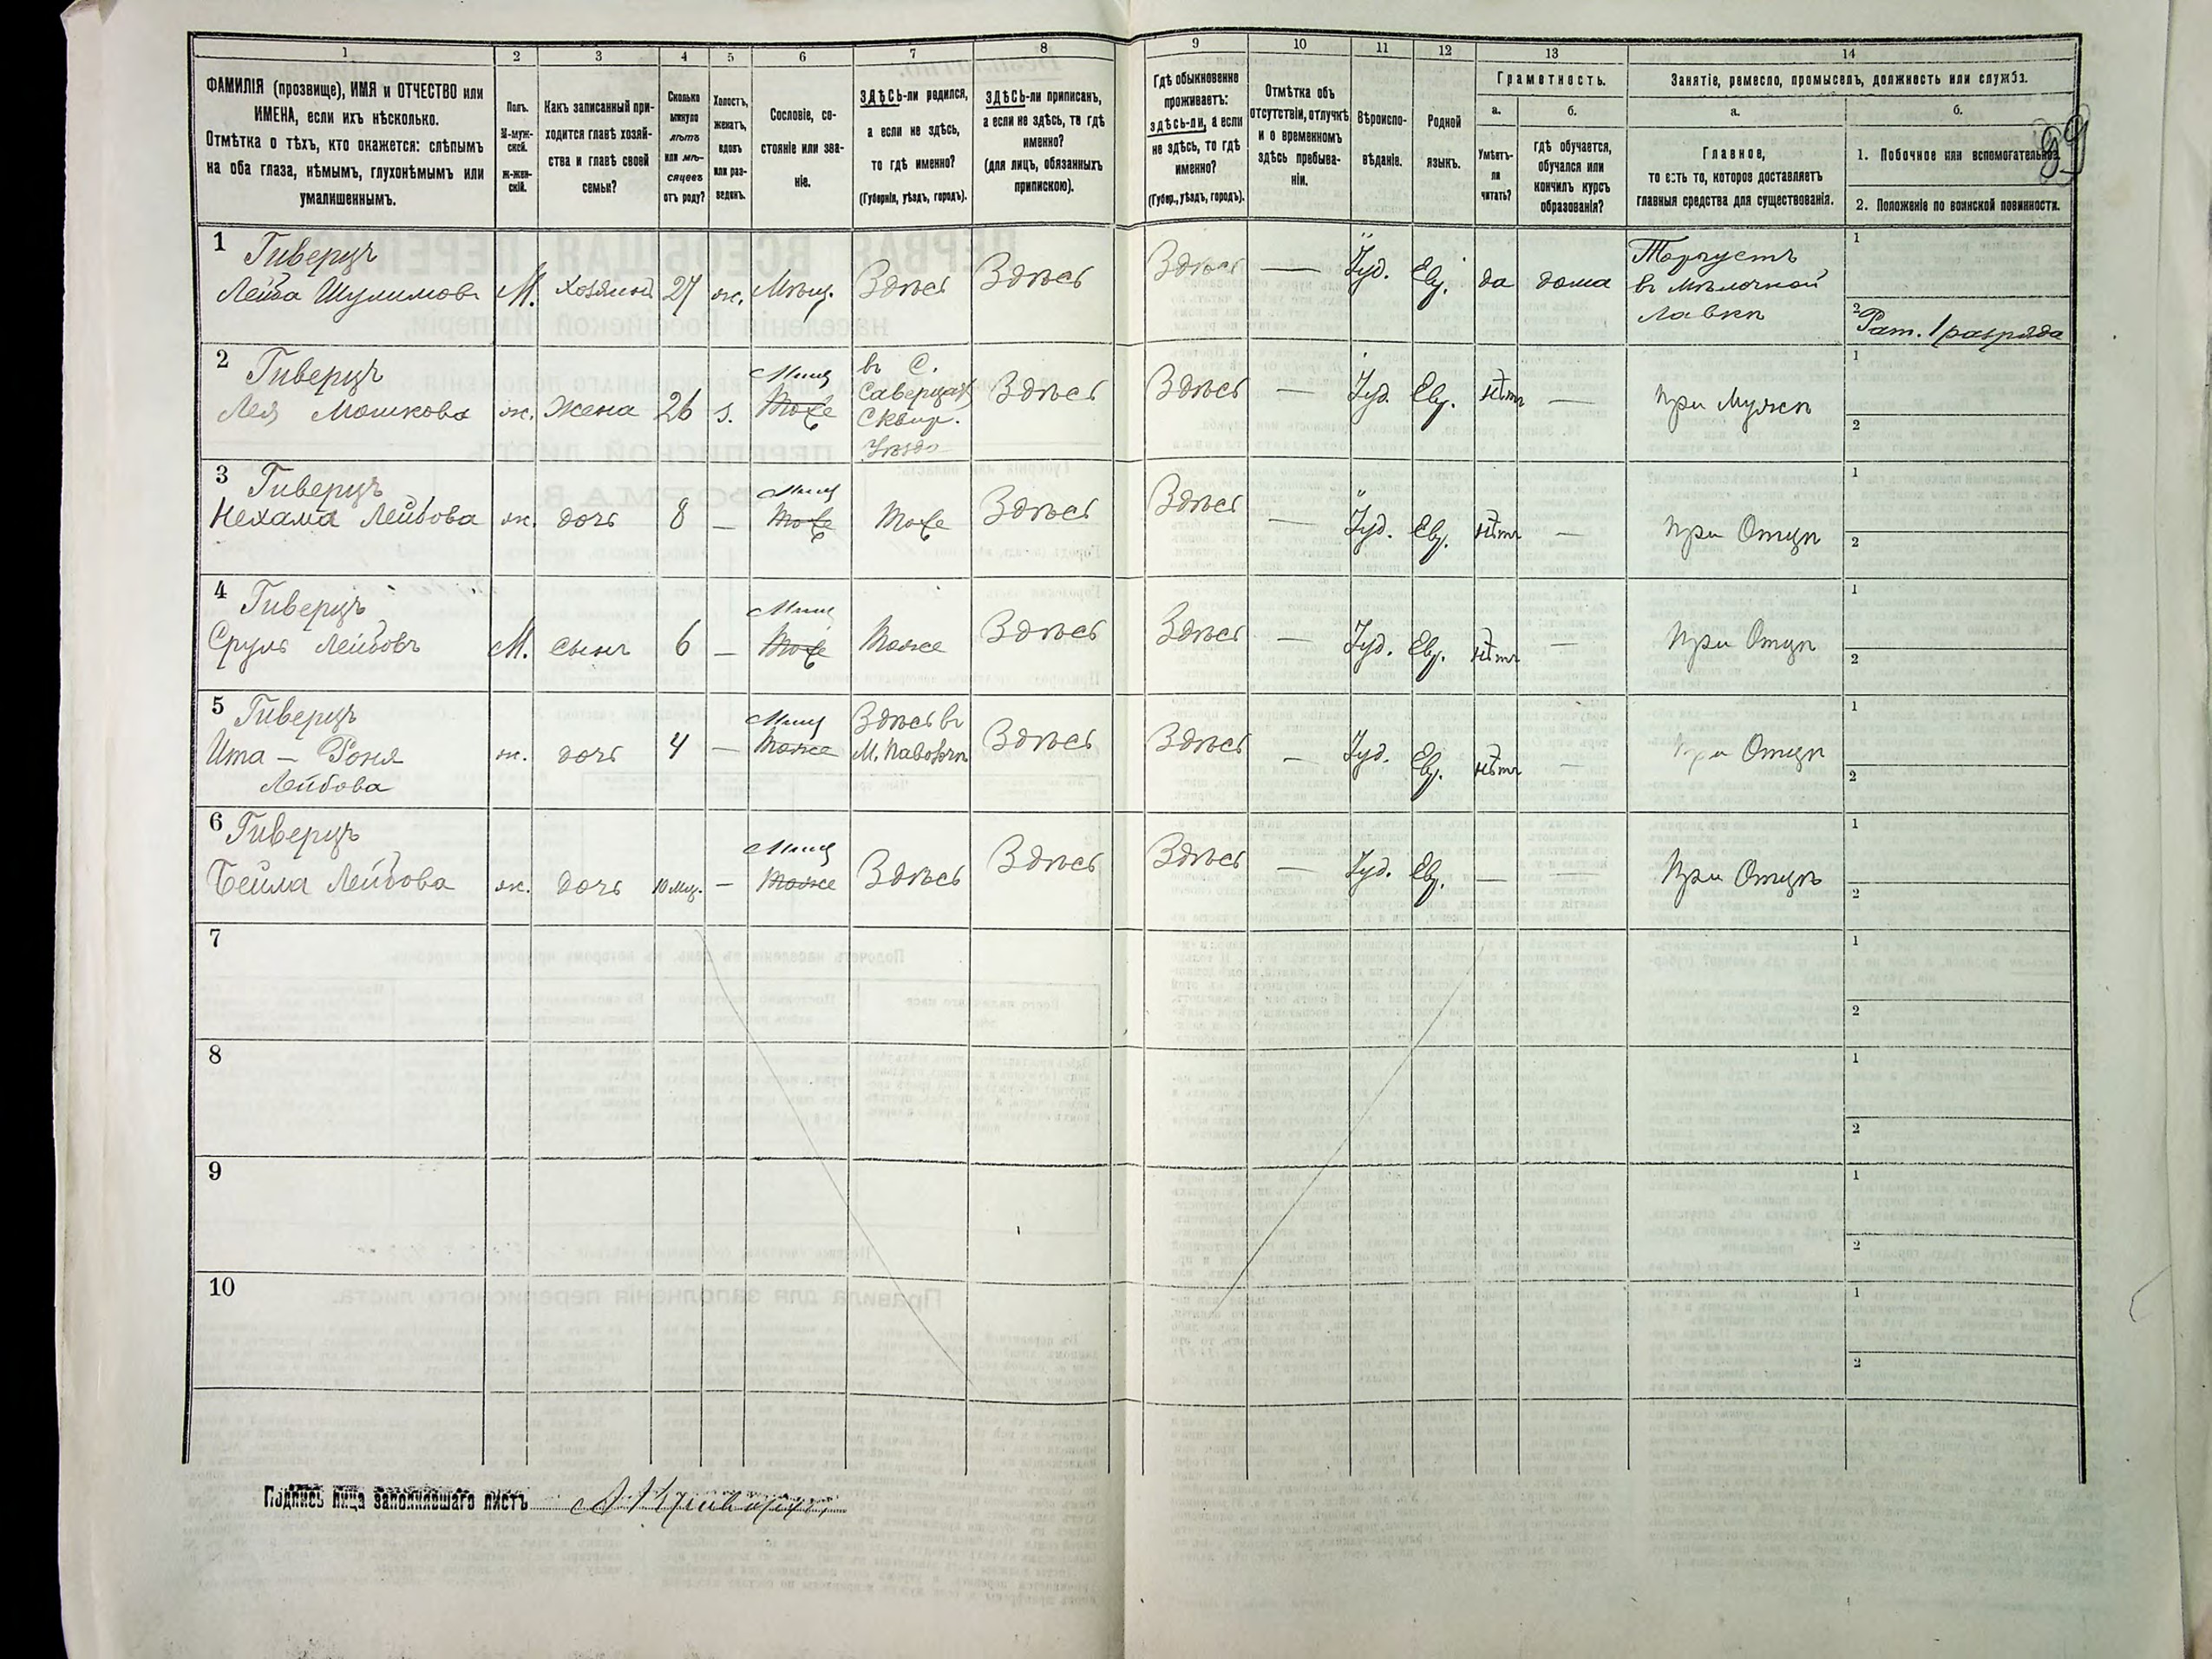 1 2 3 4 5 6 7 8 9 10 11 12 13 14
ФАМИЛІЯ (прозвище), ИМЯ и ОТЧЕСТВО или
ИМЕНА, если ихъ нѣсколько.
Отмѣтка о тѣхъ, кто окажется: слѣпымъ
на оба глаза, нѣмымъ, глухонѣмымъ или
умалишеннымъ.
Полъ.
М-муж-
ской.
Ж-жен-
скій.
Какъ записанный при-
ходится главѣ хозяй-
ства и главѣ своей
семьи?
Сколько
минуло
лѣтъ
или мѣ-
сяцевъ
отъ роду?
Холостъ,
женатъ,
вдовъ
или раз-
веденъ.
Сословіе, со-
стояніе или зва-
ніе.
ЗДѢСЬ-ли родился,
а если не здѣсь,
то гдѣ именно?
(Губернія, уѣздъ, городъ).
ЗДѢСЬ-ли приписанъ,
а если не здѣсь, то гдѣ
именно?
(для лицъ, обязанныхъ
припискою).
Гдѣ обыкновенно
проживаетъ:
здѣсь-ли, а если
не здѣсь, то гдѣ
именно?
(Губер., уѣздъ, городъ).
Отмѣтка объ
отсутствіи, отлучкѣ
и о временномъ
здѣсь пребыва-
ніи.
Вѣроиспо-
вѣданіе.
Родной
языкъ.
Грамотность.
а. б.
Умѣетъ-
ли
читать?
гдѣ обучается,
обучался или
кончилъ курсъ
образованія?
Занятіе, ремесло, промыселъ, должность или служба.
а. б.
Главное,
то есть то, которое доставляетъ
главныя средства для существованія.
1. Побочное или вспомогательное.
2. Положеніе по воинской повинности.
99
1 Гиверцъ
Лейба Шулимовъ М. Хозяинъ 27 ж. Мѣщ. Здѣсь Здѣсь Здѣсь — Іуд. Евр. да дома
Торгуетъ
въ мѣлочной
лавкѣ
1
2 Рат. 1 разряда
2 Гиверцъ
Лея Мошкова ж. Жена 26 з. Мѣщ Тоже
въ С.
Саверцахъ
Сквир.
Уѣзда
Здѣсь Здѣсь — Іуд. Евр. нѣтъ — при Мужѣ
1
2
3 Гиверцъ
Нехама Лейбова ж. дочь 8 — Мѣщ Тоже Тоже Здѣсь Здѣсь — Іуд. Евр. нѣтъ — при Отцѣ
1
2
4 Гиверцъ
Сруль Лейбовъ М. Сынъ 6 — Мѣщ Тоже Тоже Здѣсь Здѣсь — Іуд. Евр. нѣтъ — при Отцѣ
1
2
5 Гиверцъ
Ита — Роня
Лейбова ж. дочь 4 — Мѣщ Тоже
Здѣсь въ
М. Паволочѣ
Здѣсь Здѣсь — Іуд. Евр. нѣтъ — при Отцѣ
1
2
6 Гиверцъ
Бейла Лейбова ж. дочь 10 мѣс. — Мѣщ Тоже Здѣсь Здѣсь Здѣсь — Іуд. Евр. — — При Отцѣ
1
2
7
1
2
8
1
2
9
1
2
10
1
2
Подпись лица заполнявшаго листъ